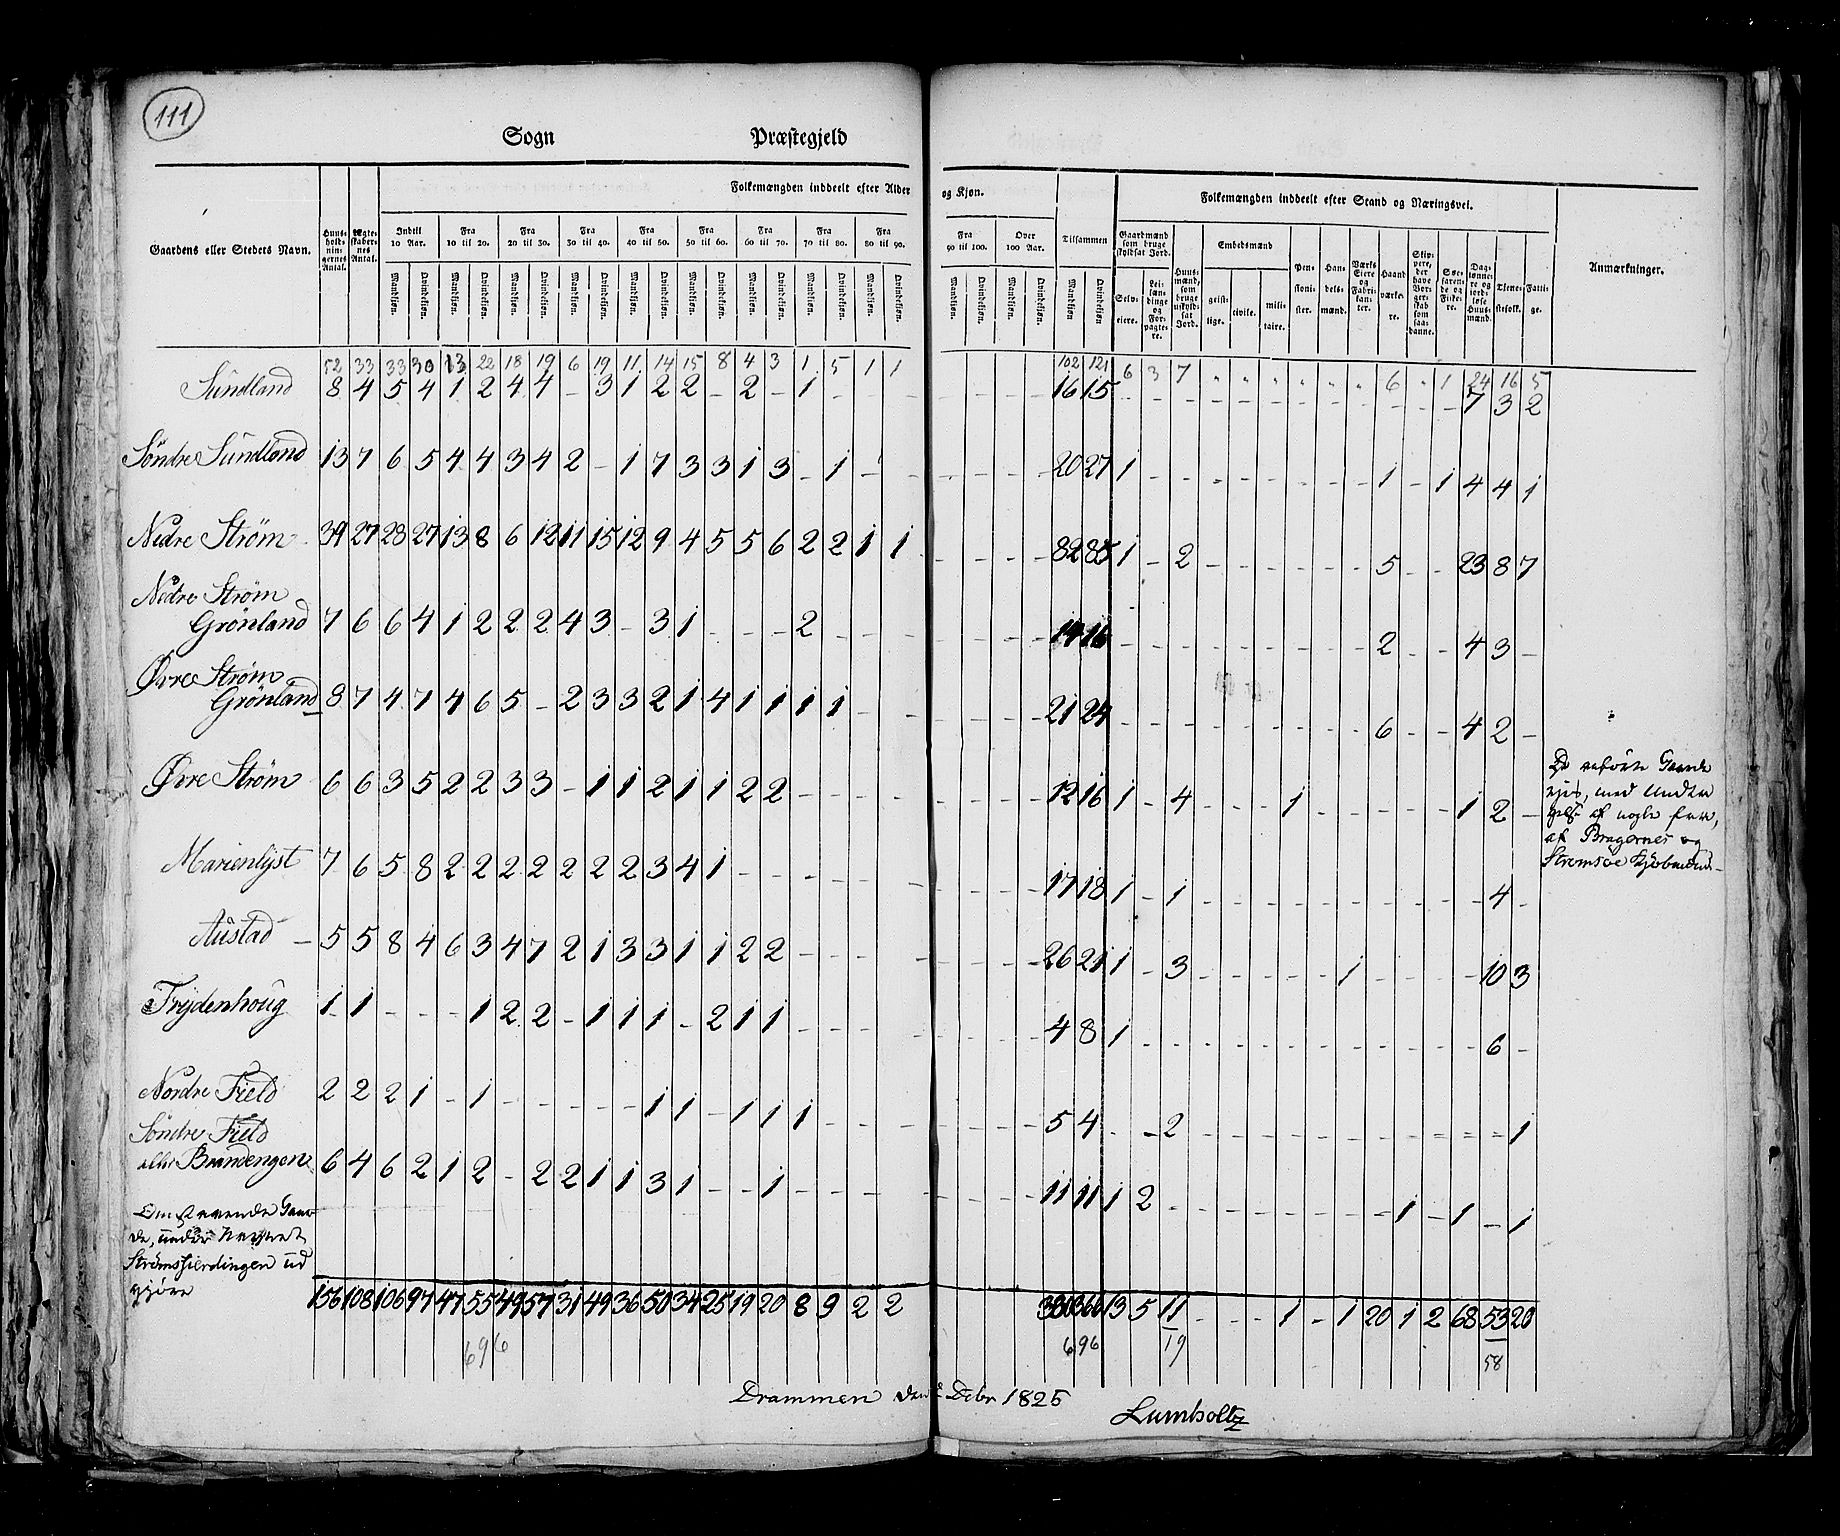 111
Sogn Præstegjeld
Folkemængden inddeelt efter Alder og Kjøn.
Folkemængden inddeelt efter Stand og Næringsvei.
Gaardens eller Stedets Navn.
Huus-hold-nin-gernes Antal.
Ægte-skaber-nes Antal.
Indtil 10 Aar.
Fra 10 til 20.
Fra 20 til 30.
Fra 30 til 40.
Fra 40 til 50.
Fra 50 til 60.
Fra 60 til 70.
Fra 70 til 80.
Fra 80 til 90.
Fra 90 til 100.
Over 100 Aar.
Tilsammen
Mandkiøn. Qvindekiøn.
Gaardmænd som bruge skyldsat Jord.
Selv-eiere.
Lei-læn-dinge og For-pagte-re.
Huus-mænd, som bruge uskyld-sat Jord.
Embedsmænd
geist-lige.
civile.
mili-taire.
Pen-sioni-ster.
Han-dels-mænd.
Værks Eiere og Fabri-kan-ter.
Haand værke-re.
Skip-pere, der have Bor-ger-skab som saa-danne.
Søe-faren-de og Fiske-re.
Dag-lønne-re og jord-løse Huus-mænd.
Tjene-stefolk.
Fatti-ge.
Anmærkninger.
52 33 33 30 13 22 18 19 6 19 11 14 15 8 4 3 1 5 1 1 102 121 6 3 7 " " " " " " 6 " 1 24 16 5
Sundland 8 4 5 4 1 2 4 4 - 3 1 2 2 - 2 - 1 - - - 16 15 - - - - - - - - - - - - 7 3 2
Söndre Sundland 13 7 6 5 4 4 3 4 2 - 1 7 3 3 1 3 - 1 - - - - - - 20 27 1 - - - - - - - - 1 - 1 4 4 1
Nedre Strøm 39 27 28 27 13 8 6 12 11 15 12 9 4 5 5 6 2 2 1 1 - - - - 82 85 1 - 2 - - - - - - 5 - - 23 8 7
Nedre Strøm
Grönland 7 6 6 4 1 2 2 2 4 3 - 3 1 - - - 2 - - - - - - - 14 16 - - - - - - - - - 2 - - 4 3 -
Øvre Strøm
Grönland 8 7 4 7 4 6 5 - 2 3 3 2 1 4 1 1 1 1 - - - - - - 21 24 - - - - - - - - - 6 - - 4 2 -
Øvre Strøm 6 6 3 5 2 2 3 3 - 1 1 2 1 1 2 2 - - - - - - - - 12 16 1 - 4 - - - 1 - - - - - 1 2 -
Marienlyst 7 6 5 8 2 2 2 2 2 2 2 3 4 1 - - - - - - - - - - 17 18 1 - 1 - - - - - - - - - - 4 -
Austad 5 5 8 4 6 3 4 7 2 1 3 3 1 1 2 2 - - - - - - - - 26 21 1 - 3 - - - - 1 - - - - - 10 3
Frydenhoug 1 1 - - - 1 2 2 - 1 1 1 - 2 1 1 - - - - - - - - 4 8 1 - - - - - - - - - - - - 6 -
Nordre Field 2 2 2 1 - 1 - - - - - 1 1 - 1 1 1 - - - - - - - 5 4 - - 2 - - - - - - - - - - - 1
Söndre Field
eller Brandengen 6 4 6 2 1 2 - 2 2 1 1 3 1 - - 1 - - - - - - - - 11 11 1 2 - - - - - - - - 1 - 1 - 1
De anförte Gaarde
ejes, med Undta
gelse af nogle faa,
af Bragernes og
Stromsöe Kjöbmænd
de, under
Strømsfierdingen ud
gjöre
156 108 106 97 47 55 49 57 31 49 36 50 34 25 19 20 8 9 2 2 330 366 13 5 11 - - - 1 - 1 20 1 2 68 53 20
696 696 19 58
Drammen den Debr 1825
Lumholtz